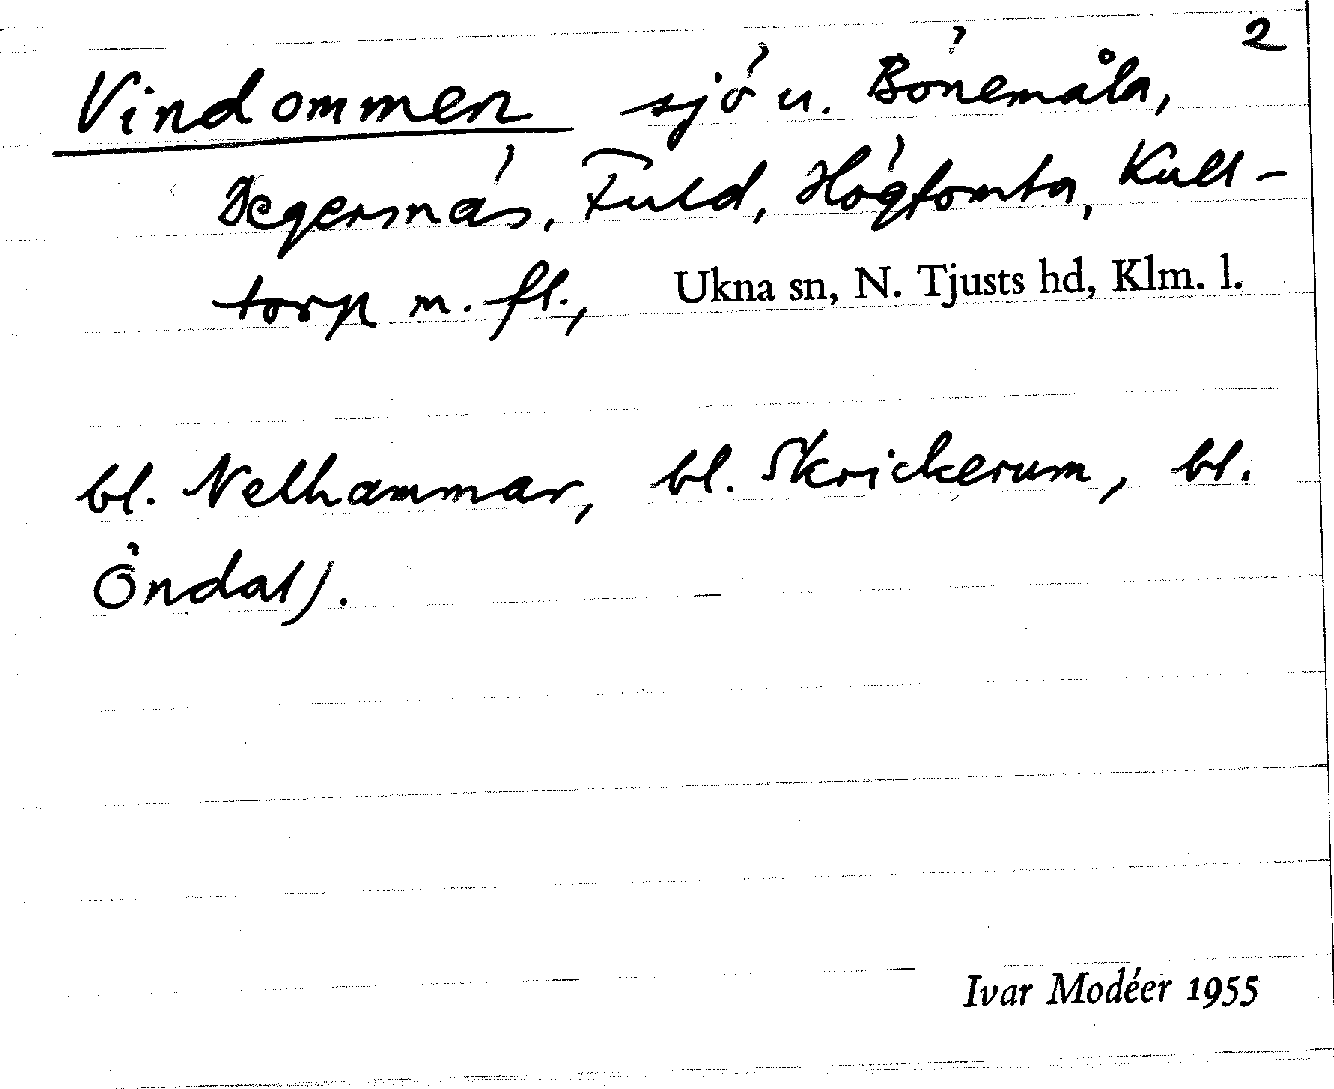 2
Vindommen sjö u. Bönemåla,
Degernäs, Fuld, Högtomta, Kull-
torp m. fl., Ukna sn, N. Tjusts hd, Klm. l.
bl. Nelhammar, bl. Skrickerum, bl.
Öndal).
Ivar Modéer 1955